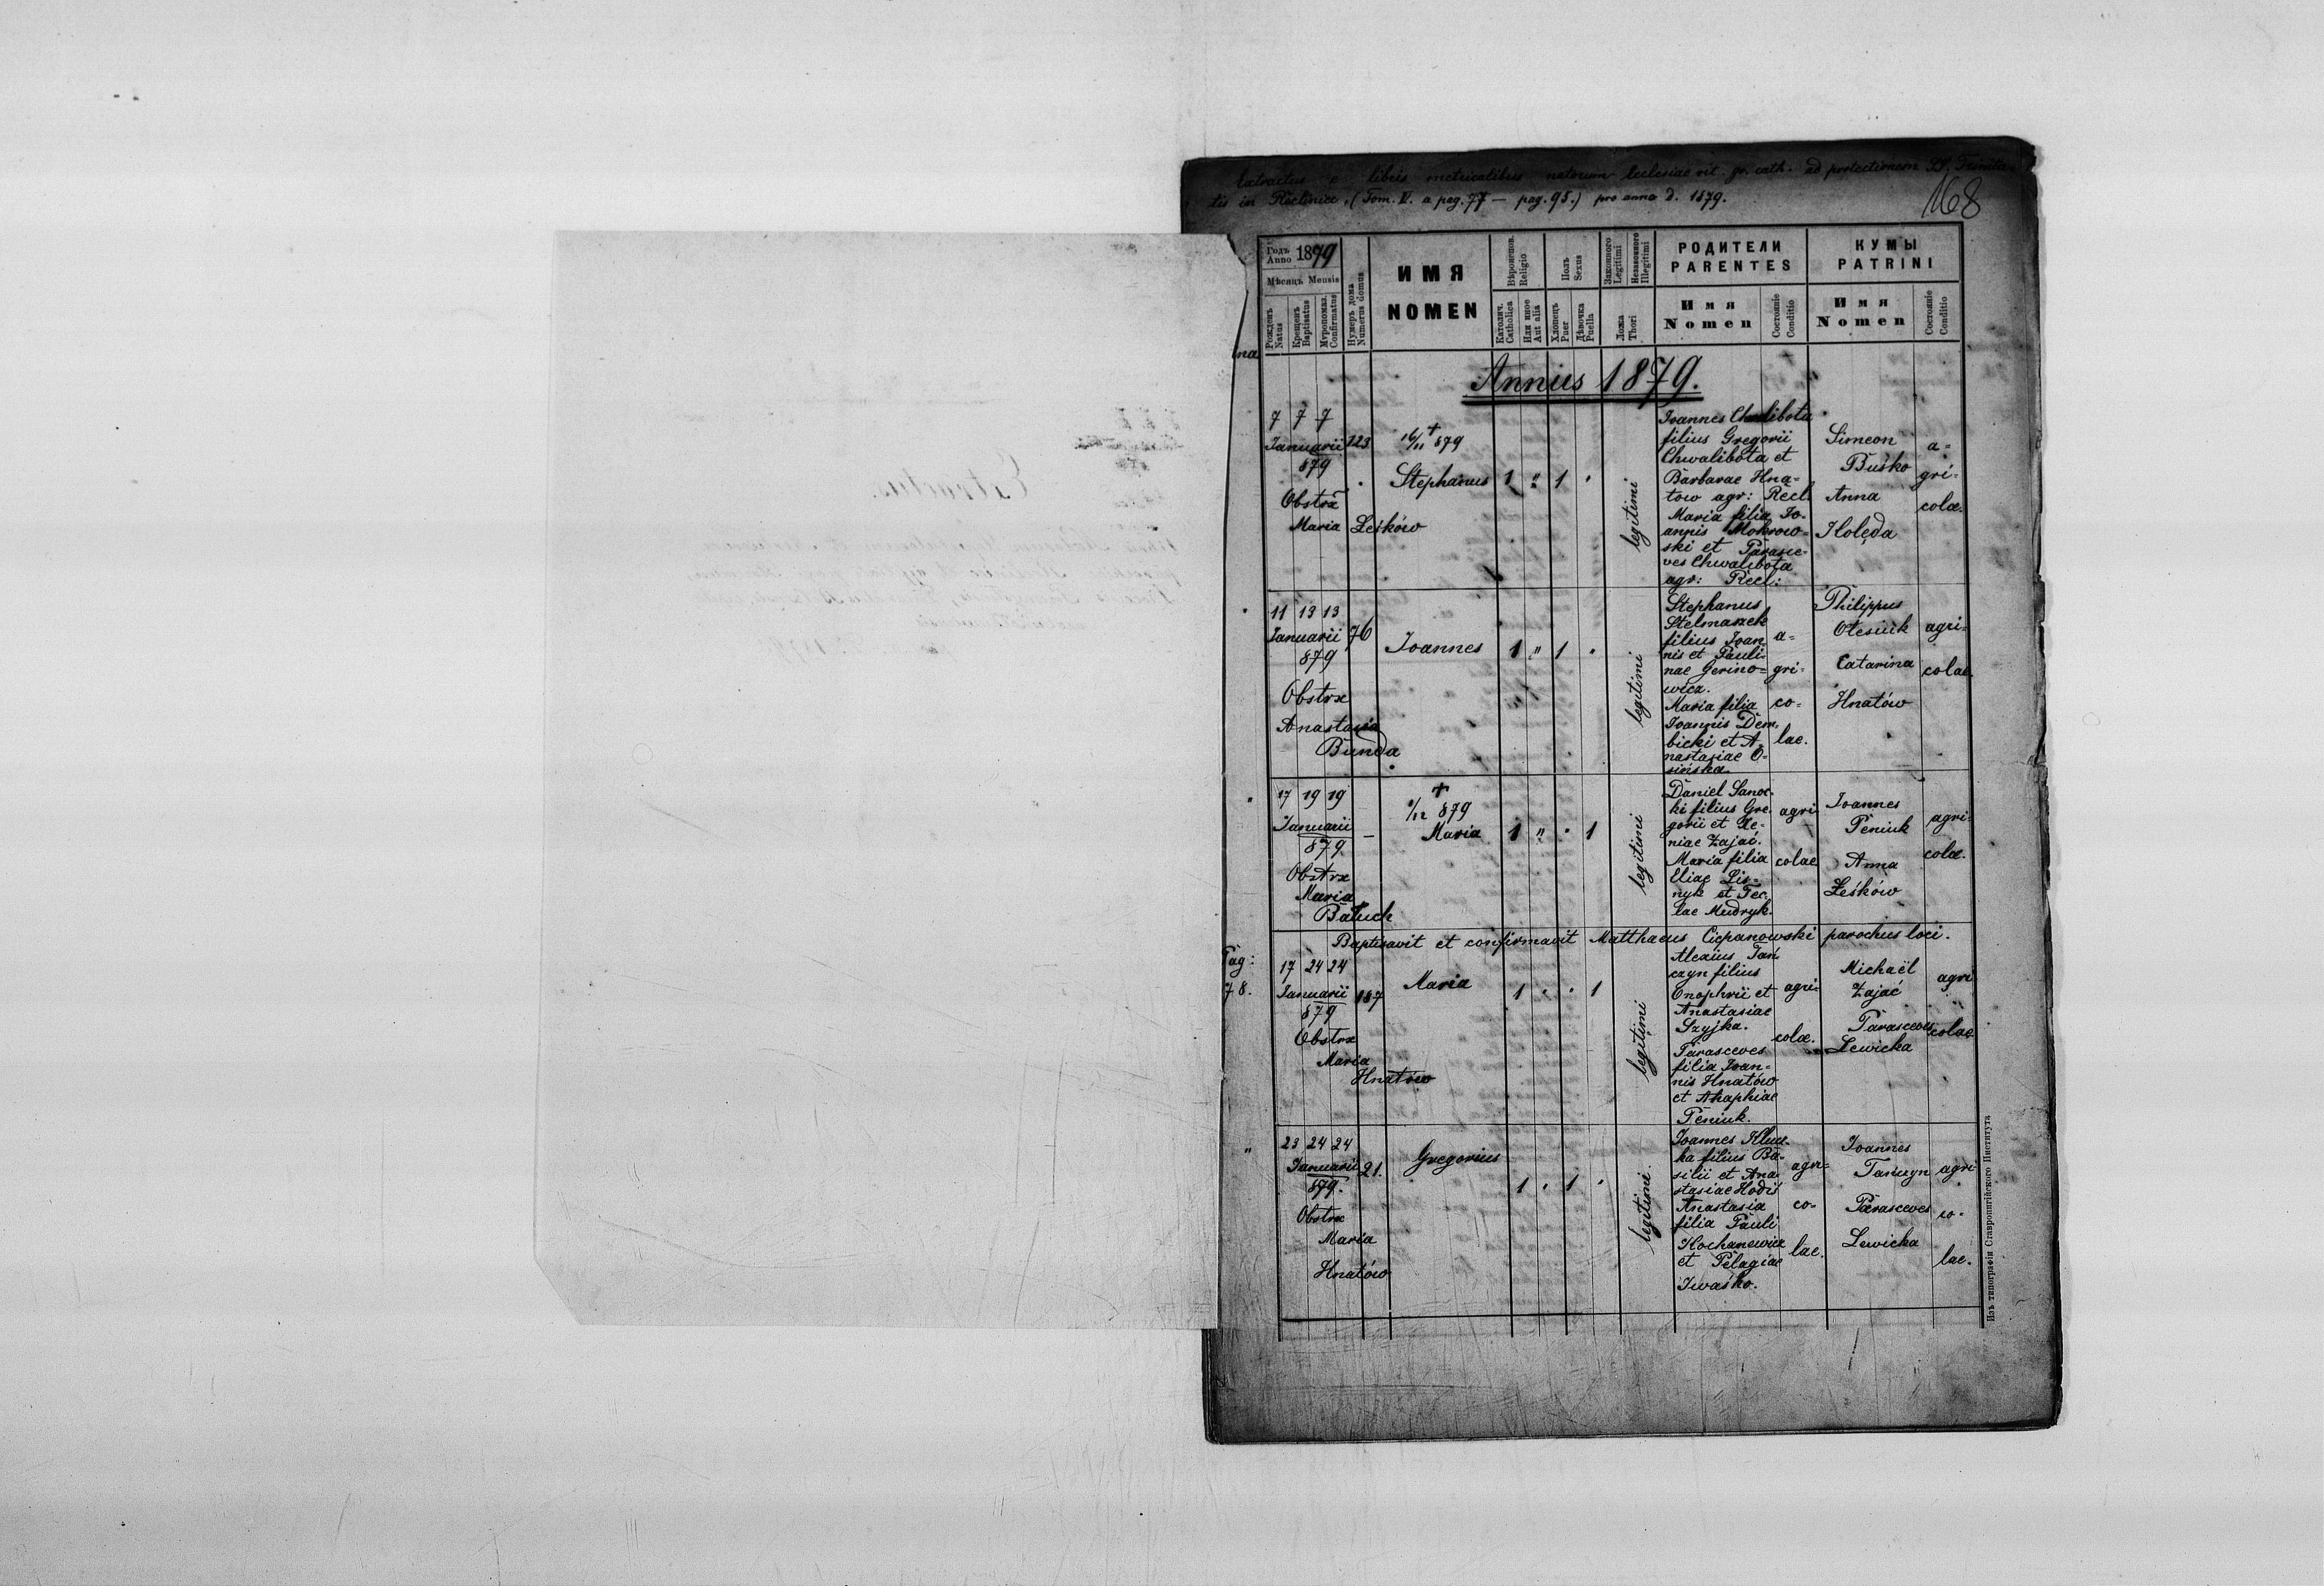 Extractus e libris metricalibus natorum Ecclesiae rit. gr. cath. ad protectionem SS. Trinita-
tis in Reclinia, (Tom. V. a pag. 77 — pag. 95.) pro anno d. 1879.
168
Годъ Anno 1879
Мѣсяцъ Mensis
Рожденъ Natus
Крещенъ Baptisatus
Мѵропомаз. Confirmatus
Нумеръ дома Numerus domus
ИМЯ
NOMEN
Вѣроиспов. Religio
Католич. Catholica
Или иное Aut alia
Полъ Sexus
Хлопецъ Puer
Дѣвочка Puella
Законного Legitimi
Незаконного Illegitimi
Ложа Thori
РОДИТЕЛИ
PARENTES
Имя
Nomen
Состояніе Conditio
КУМЫ
PATRINI
Имя
Nomen
Состояніе Conditio
Annus 1879.
7 7 7
Januarii
879
Obstrx
Maria Leśków
123
16/11 + 879
Stephanus
1 " 1
legitimi
Joannes Chwalibota
filius Gregorii
Chwalibota et
Barbarae Hna-
tow agr: Recl.
Maria filia Jo-
annis Mokrow-
ski et Parasce-
ves Chwalibota
agr: Recl:
Simeon
Buśko
Anna
Holęda
a=
gri=
colae.
11 13 13
Januarii
879
Obstrx
Anastasia
Bunda
76
Joannes
1 " 1
legitimi
Stephanus
Stelmaszek
filius Joan
nis et Pauli-
nae Gerino=
wicz.
Maria filia
Joannis Dem-
bicki et A-
nastasiae O-
sińska
a=
gri=
co=
lae.
Philippus
Olesiuk
Catarina
Hnatów
agri=
colae.
17 19 19
Januarii
879
Obstrx
Maria
Baluch
—
+
1/12 879
Maria
1 " . 1
legitimi
Daniel Sanoc-
ki filius Gre-
gorii et Xe-
niae Zając.
Maria filia
Eliae Lis-
nyk et Tec-
lae Mudryk.
agri
colae
Joannes
Peniuk
Anna
Leśków
agri-
colae.
Baptisavit et confirmavit Matthaeus Ciepanowski parochus loci.
Pag:
78.
17 24 24
Januarii
879
Obstrx
Maria
Hnatów
187
Maria
1 . . 1
legitimi
Alexius Tan
czyn filius
Onophrii et
Anastasiae
Szyjka.
Parasceves
filia Joan=
nis Hnatów
et Ahaphiae
Peniuk.
agri=
colae.
Michaël
Zając
Parasceves
Lewicka
agri
colae
23 24 24
Januarii
879.
Obstrx
Maria
Hnatów
21.
Gregorius
1 . 1 .
legitimi
ka filius Ba-
silii et Ana-
stasiae Hodis
Anastasia
filia Pauli
Kochanewicz
et Pelagiae
Iwaśko.
agri=
co=
lae.
Joannes
Tanczyn
Parasceves
Lewicka
agri
co=
lae.
Изъ типографіи Ставропигійского Института